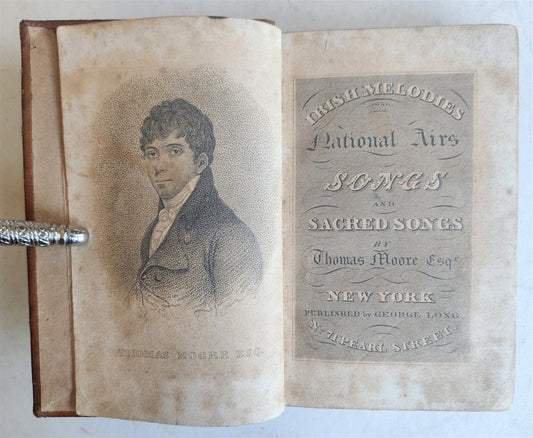 THOMAS MOORE ESQ.
IRISH MELODIES
National Airs
SONGS
AND
SACRED SONGS
BY
Thomas Moore Esqr.
NEW YORK
PUBLISHED by GEORGE LONG
No. 71 PEARL STREET